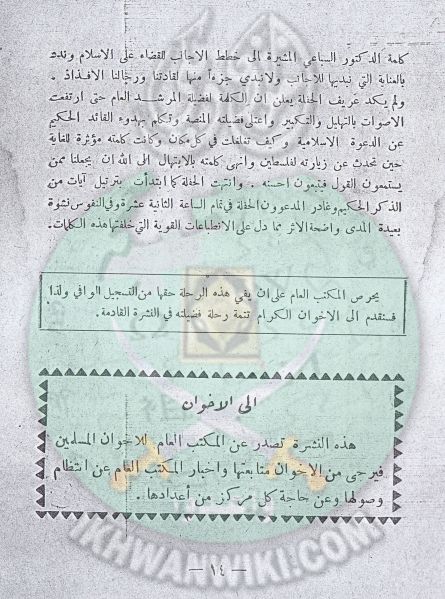 كلمة الدكتور السباعي المشيرة الى خطط الاجانب للقضاء على الاسلام وندد
بالعناية التي نبديها للاجانب ولانبدي جزءاً منها لقادتنا ورجالنا الافذاذ .
ولم يكد عريف الحفلة يعلن ان الكلمة لفضيلة المرشد العام حتى ارتفعت
الاصوات بالتهليل والتكبير واعتلى فضيلته المنصة وتكلم بهدوء القائد الحكيم
عن الدعوة الاسلامية وكيف تغلغلت في كل مكان وكانت كلمته مؤثرة للغاية
حين تحدث عن زيارته لفلسطين وانهى كلمته بالابتهال الى الله ان يجعلنا ممن
يستمعون القول فيتبعون احسنه . وانتهت الحفلة كما ابتدأت بترتيل آيات من
الذكر الحكيم وغادر المدعوون الحفلة في تمام الساعة الثانية عشرة وفي النفوس نشوة
بعيدة المدى واضحة الاثر مما دل على الانطباعات القوية التي خلفتها هذه الكلمات.
يحرص المكتب العام على ان يفي هذه الرحلة حقها من التسجيل الوافي ولذا
فسنقدم الى الاخوان الكرام تتمة رحلة فضيلته في النشرة القادمة.
الى الاخوان
هذه النشرة تصدر عن المكتب العام للاخوان المسلمين
فيرجى من الاخوان متابعتها واخبار المكتب العام عن انتظام
وصولها وعن حاجة كل مركز من أعدادها.
— ١٤ —
IKHWANWIKI.COM